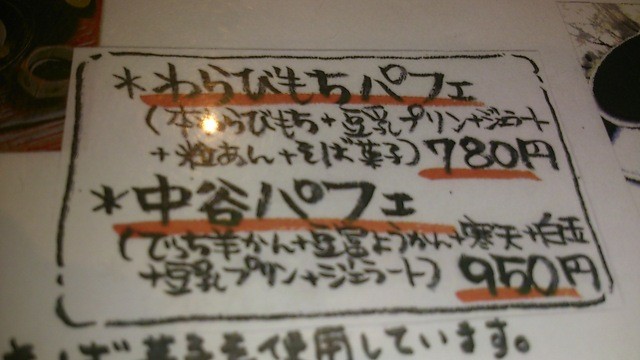 *わらびもちパフェ
(本わらびもち+豆乳プリン+ジェラート
+粒あん+そば菓子)780円
*中谷パフェ
(でっち羊かん+豆富ようかん+寒天+白玉
+豆乳プリン+ジェラート)950円
を使用しています。